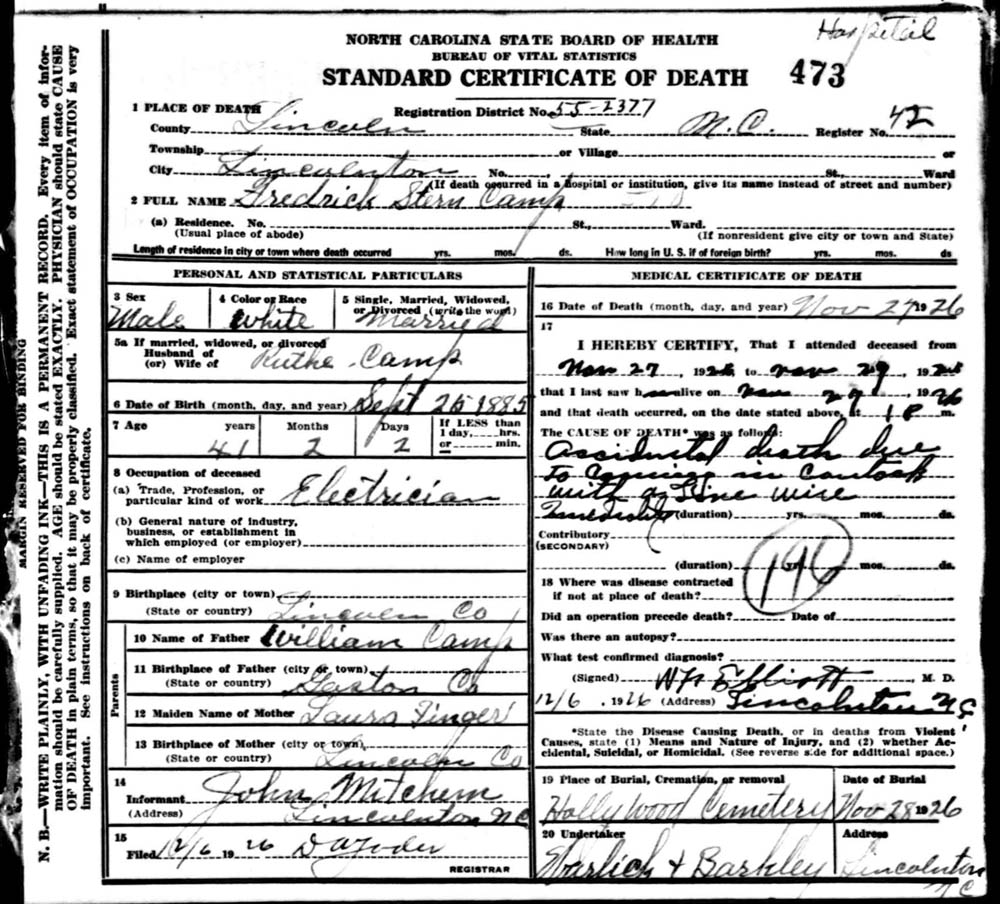 Hospital
NORTH CAROLINA STATE BOARD OF HEALTH
BUREAU OF VITAL STATISTICS
STANDARD CERTIFICATE OF DEATH 473
1 PLACE OF DEATH Registration District No. 55-2377
County Lincoln State N.C. Register No. 42
Township or Village or
City Lincolnton No. St., Ward
(If death occurred in a hospital or institution, give its name instead of street and number)
2 FULL NAME Fredrick Stern Camp
(a) Residence. No. St., Ward.
(Usual place of abode) (If nonresident give city or town and State)
Length of residence in city or town where death occurred yrs. mos. ds. How long in U. S. if of foreign birth? yrs. mos. ds
PERSONAL AND STATISTICAL PARTICULARS
3 Sex 4 Color or Race 5 Single, Married, Widowed,
or Divorced (write the word)
Male White Married
5a If married, widowed, or divorced
Husband of
(or) Wife of Ruthe Camp
6 Date of Birth (month, day, and year) Sept 25 1885
7 Age years Months Days If LESS than
1 day, hrs.
or min.
41 2 2
8 Occupation of deceased
(a) Trade, Profession, or
particular kind of work Electrician
(b) General nature of industry,
business, or establishment in
which employed (or employer)
(c) Name of employer
9 Birthplace (city or town)
(State or country) Lincoln Co
Parents
10 Name of Father William Camp
11 Birthplace of Father (city or town)
(State or country) Gaston Co
12 Maiden Name of Mother Laura Finger
13 Birthplace of Mother (city or town)
(State or country) Lincoln Co
14
Informant John Mitchem
(Address) Lincolnton NC
15
Filed 12/6 1926 D A Yoder
REGISTRAR
MEDICAL CERTIFICATE OF DEATH
16 Date of Death (month, day, and year) Nov 27 1926
17
I HEREBY CERTIFY, That I attended deceased from
Nov 27, 1926 to Nov 29, 192
that I last saw h alive on Nov 27, 1926
and that death occurred, on the date stated above, at 1 P m.
The CAUSE OF DEATH* was as follows:
Accidental death due
to coming in contact
with a line wire
(duration) yrs. mos. ds.
Contributory
(SECONDARY)
(duration) yrs. mos. ds.
196
18 Where was disease contracted
if not at place of death?
Did an operation precede death? Date of
Was there an autopsy?
What test confirmed diagnosis?
(Signed) Elliott, M. D.
12/6, 1926 (Address) Lincolnton NC
*State the Disease Causing Death, or in deaths from Violent
Causes, state (1) Means and Nature of Injury, and (2) whether Ac-
cidental, Suicidal, or Homicidal. (See reverse side for additional space.)
19 Place of Burial, Cremation, or removal Date of Burial
Hollywood Cemetery Nov 28 1926
20 Undertaker Address
Warlick & Barkley Lincolnton
NC
MARGIN RESERVED FOR BINDING
N. B.—WRITE PLAINLY, WITH UNFADING INK—THIS IS A PERMANENT RECORD. Every item of infor-
mation should be carefully supplied. AGE should be stated EXACTLY. PHYSICIAN should state CAUSE
OF DEATH in plain terms, so that it may be properly classified. Exact statement of OCCUPATION is very
important. See instructions on back of certificate.